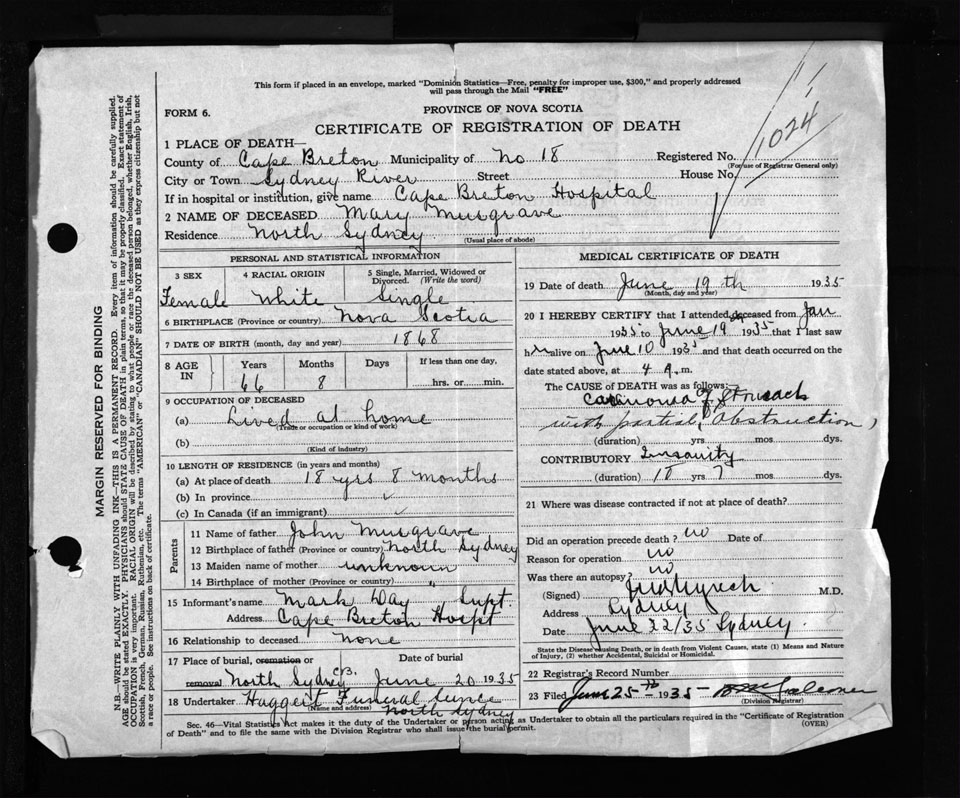 This form if placed in an envelope, marked "Dominion Statistics—Free, penalty for improper use, $300," and properly addressed
will pass through the Mail "FREE"
1024
FORM 6.
PROVINCE OF NOVA SCOTIA
CERTIFICATE OF REGISTRATION OF DEATH
1 PLACE OF DEATH—
County of Cape Breton Municipality of No 18 Registered No.
(For use of Registrar General only)
City or Town Sydney River Street House No.
If in hospital or institution, give name Cape Breton Hospital
2 NAME OF DECEASED Mary Musgrave
Residence North Sydney
(Usual place of abode)
PERSONAL AND STATISTICAL INFORMATION
3 SEX 4 RACIAL ORIGIN 5 Single, Married, Widowed or Divorced. (Write the word)
Female White Single
6 BIRTHPLACE (Province or country) Nova Scotia
7 DATE OF BIRTH (month, day and year) 1868
8 AGE IN Years Months Days If less than one day,
66 8 hrs. or min.
9 OCCUPATION OF DECEASED
(a) Lived at home
(Trade or occupation or kind of work)
(b)
(Kind of industry)
10 LENGTH OF RESIDENCE (in years and months)
(a) At place of death 18 yrs 8 months
(b) In province ✓
(c) In Canada (if an immigrant) ✓
Parents
11 Name of father John Musgrave
12 Birthplace of father (Province or country) North Sydney
13 Maiden name of mother unknown
14 Birthplace of mother (Province or country) "
15 Informant's name Mark Day, Supt.
Address Cape Breton Hospt
16 Relationship to deceased None
17 Place of burial, cremation or removal Date of burial
North Sydney C.B. June 20 1935
18 Undertaker Funeral
(Name and address) North Sydney
MEDICAL CERTIFICATE OF DEATH
19 Date of death June 19th 1935
(Month, day and year)
20 I HEREBY CERTIFY that I attended deceased from Jan
1935 to June 19 1935 that I last saw
her alive on June 10 1935 and that death occurred on the
date stated above, at 4 a. m.
The CAUSE OF DEATH was as follows:
Carcinoma of Stomach
with partial obstruction,
(duration) yrs mos dys.
CONTRIBUTORY Insanity
(duration) 18 yrs 7 mos. dys.
21 Where was disease contracted if not at place of death?
Did an operation precede death? no Date of
Reason for operation no
Was there an autopsy? no
(Signed) M.D.
Address Sydney
Date June 22/35 Sydney.
State the Disease causing Death, or in death from Violent Causes, state (1) Means and Nature
of Injury, (2) whether Accidental, Suicidal or Homicidal.
22 Registrar's Record Number
23 Filed June 25th 1935
(Division Registrar)
Sec. 46—Vital Statistics Act makes it the duty of the Undertaker or person acting as Undertaker to obtain all the particulars required in the "Certificate of Registration
of Death" and to file the same with the Division Registrar who shall issue the burial permit. (OVER)
MARGIN RESERVED FOR BINDING
N.B.—WRITE PLAINLY WITH UNFADING INK—THIS IS A PERMANENT RECORD. Every item of information should be carefully supplied.
AGE should be stated EXACTLY. PHYSICIANS should STATE CAUSE OF DEATH in plain terms, so that it may be properly classified. Exact statement of
OCCUPATION is very important. RACIAL ORIGIN will be described by stating to what people or race the deceased person belonged, whether English, Irish,
Scottish, French, German, Russian, Ruthenian, etc. The terms "AMERICAN" or "CANADIAN" SHOULD NOT BE USED as they express citizenship but not
a race or people. See instructions on back of certificate.